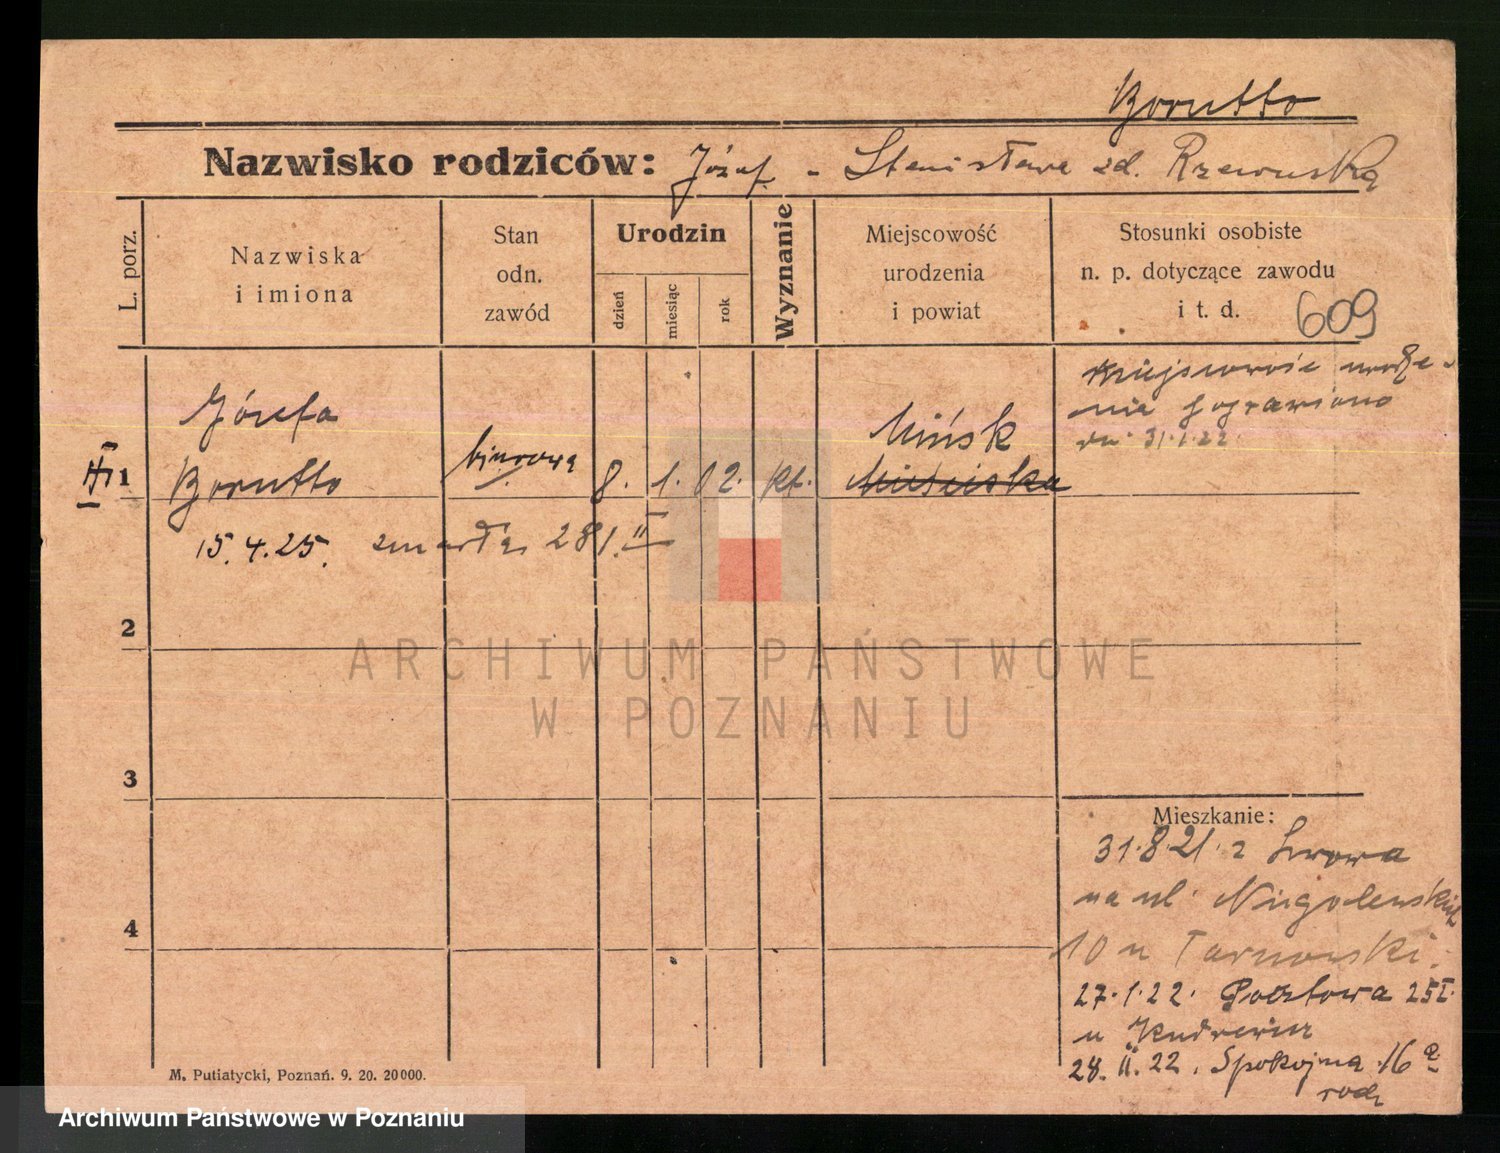 Borutto
Nazwisko rodziców: Józef - Stanisława zd. Rzewuska
L. porz.
Nazwiska
i imiona
Stan
odn.
zawód
Urodzin
dzień
miesiąc
rok
Wyznanie
Miejscowość
urodzenia
i powiat
Stosunki osobiste
n. p. dotyczące zawodu
i t. d.
609
Józefa
1 Borutto biurowa 8. 1. 02. kt. Mińsk
15.4.25. zmarła 28/.II
Miejscowość urodze-
nia poprawiono
dn. 31.1.22.
2
3
4
Mieszkanie:
31.8.21. z Lwowa
na ul.
10 u Tarnowski.
27.1.22. Pocztowa 25I.
u
28.II.22. Spokojna 16
rodz
M. Putiatycki, Poznań. 9. 20. 20000.
ARCHIWUM PAŃSTWOWE
W POZNANIU
Archiwum Państwowe w Poznaniu